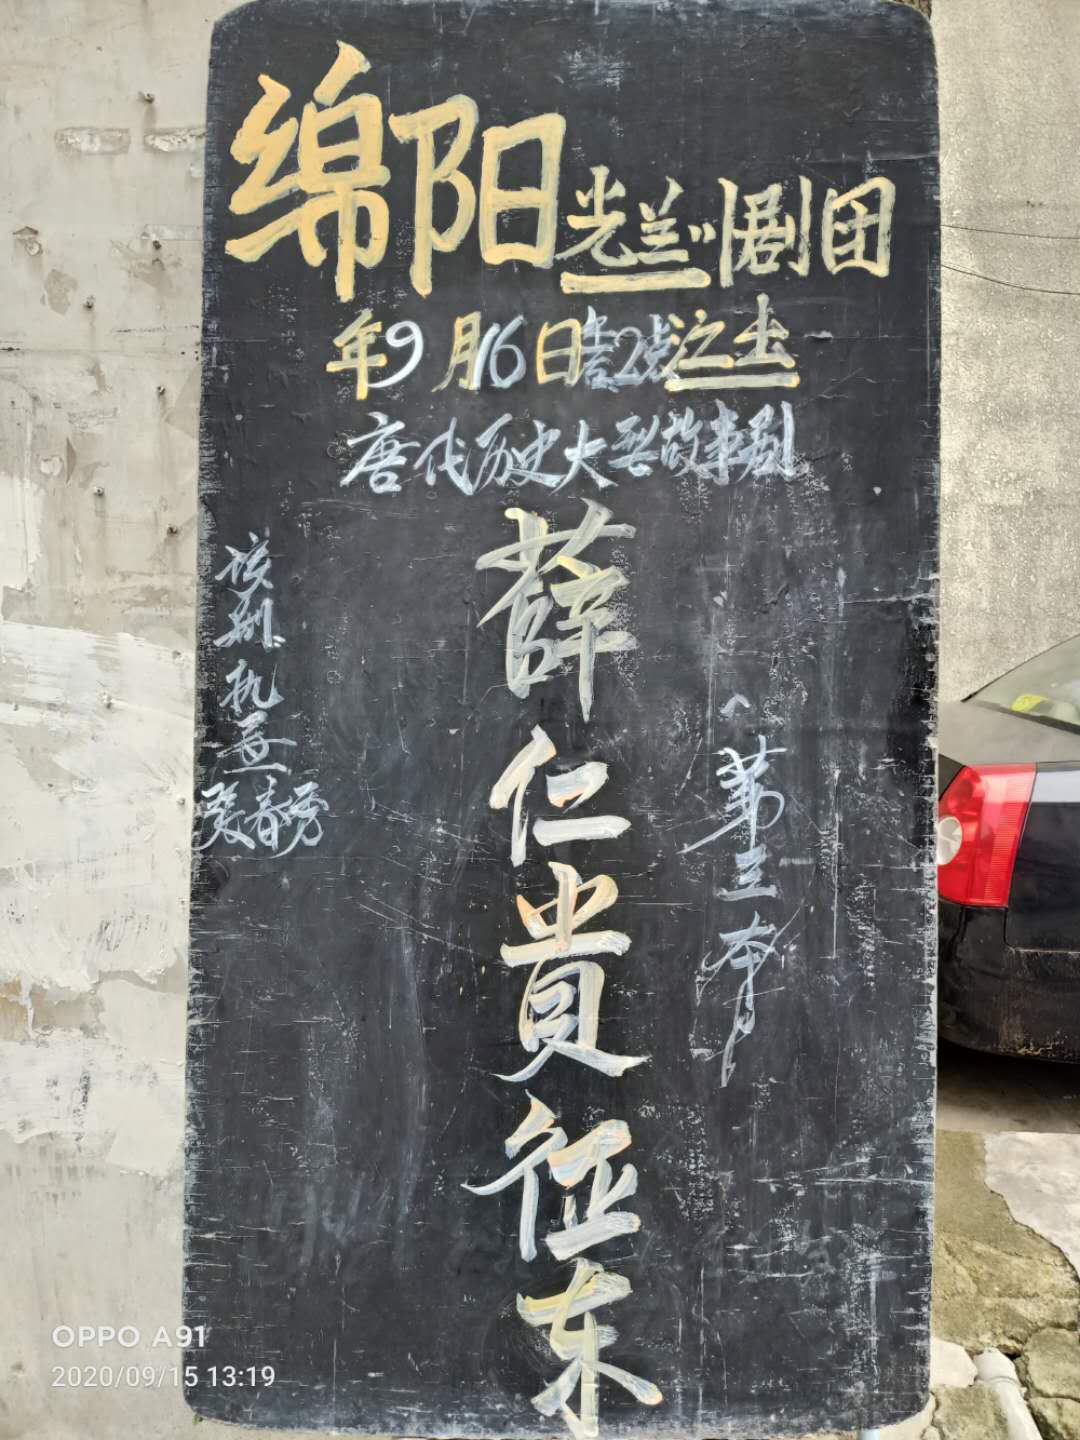 绵阳光兰川剧团
年9月16日2点之土
唐代历史大型故事剧
薛仁贵征东
第三本
该剧执
春秀
OPPO A91
2020/09/15 13:19